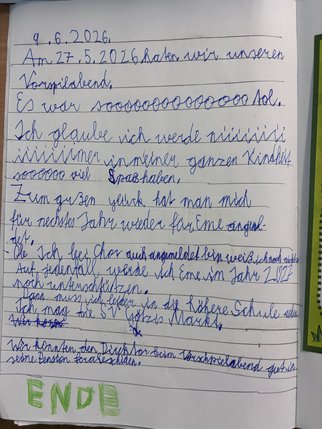 9.6.2026.
Am 27.5.2026 haten wir unseren
Vorspielabend.
Es war soooooooooooooo tol.
Ich glaube ich werde niiiiiiii
iiiiiiimer in meiner ganzen Kindheit
soooooo viel Spaß haben.
Zum großen glück hat man mich
für nechstes Jahr wieder für Eme angemel-
det.
Ob Ich bei Chor auch angemeldet bin weiß ich noch nicht
Auf jedenfall werde ich Eme im Jahr 2027
noch unterschützen.
Dann muss ich leider in die höhere Schule
Ich mag die SV Götzis Markt.
Wir konnten den Direktor beim Vorspielabend
seine Pension
ENDE